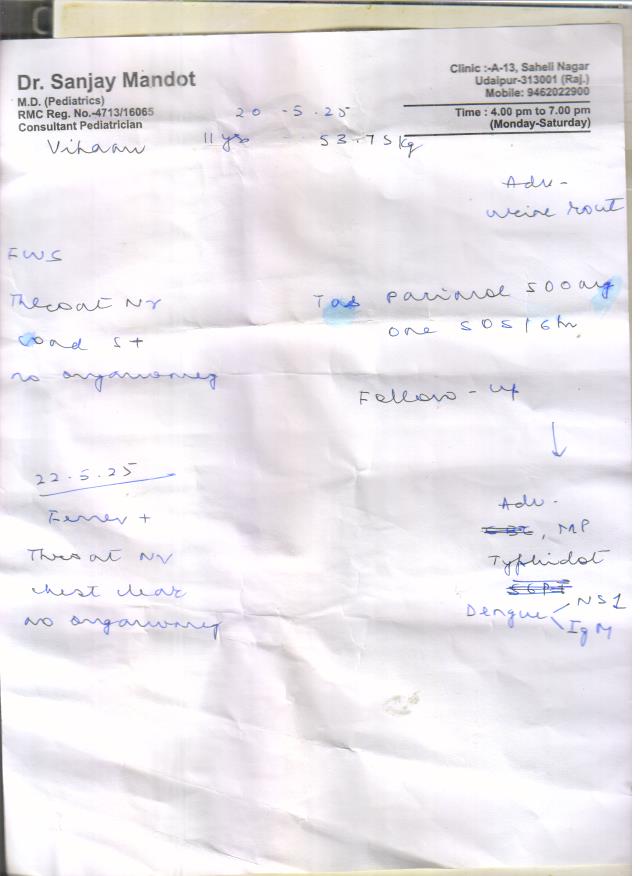 Dr. Sanjay Mandot
M.D. (Pediatrics)
RMC Reg. No.-4713/16065
Consultant Pediatrician
Clinic :-A-13, Saheli Nagar
Udaipur-313001 (Raj.)
Mobile: 9462022900
Time : 4.00 pm to 7.00 pm
(Monday-Saturday)
20-5.25
Vihaan 11 yrs 53.75 kg
Adv-
Urine rout
FWS
Throat Nr
S+
no organomeg
Tab 500 mg
one SOS / 6 hr
Follow-up
22.5.25
Fever +
Throat Nr
chest clear
no organomeg
Adv-
CBC, MP
Typhidot
SGPT
Dengue NS1
IgM